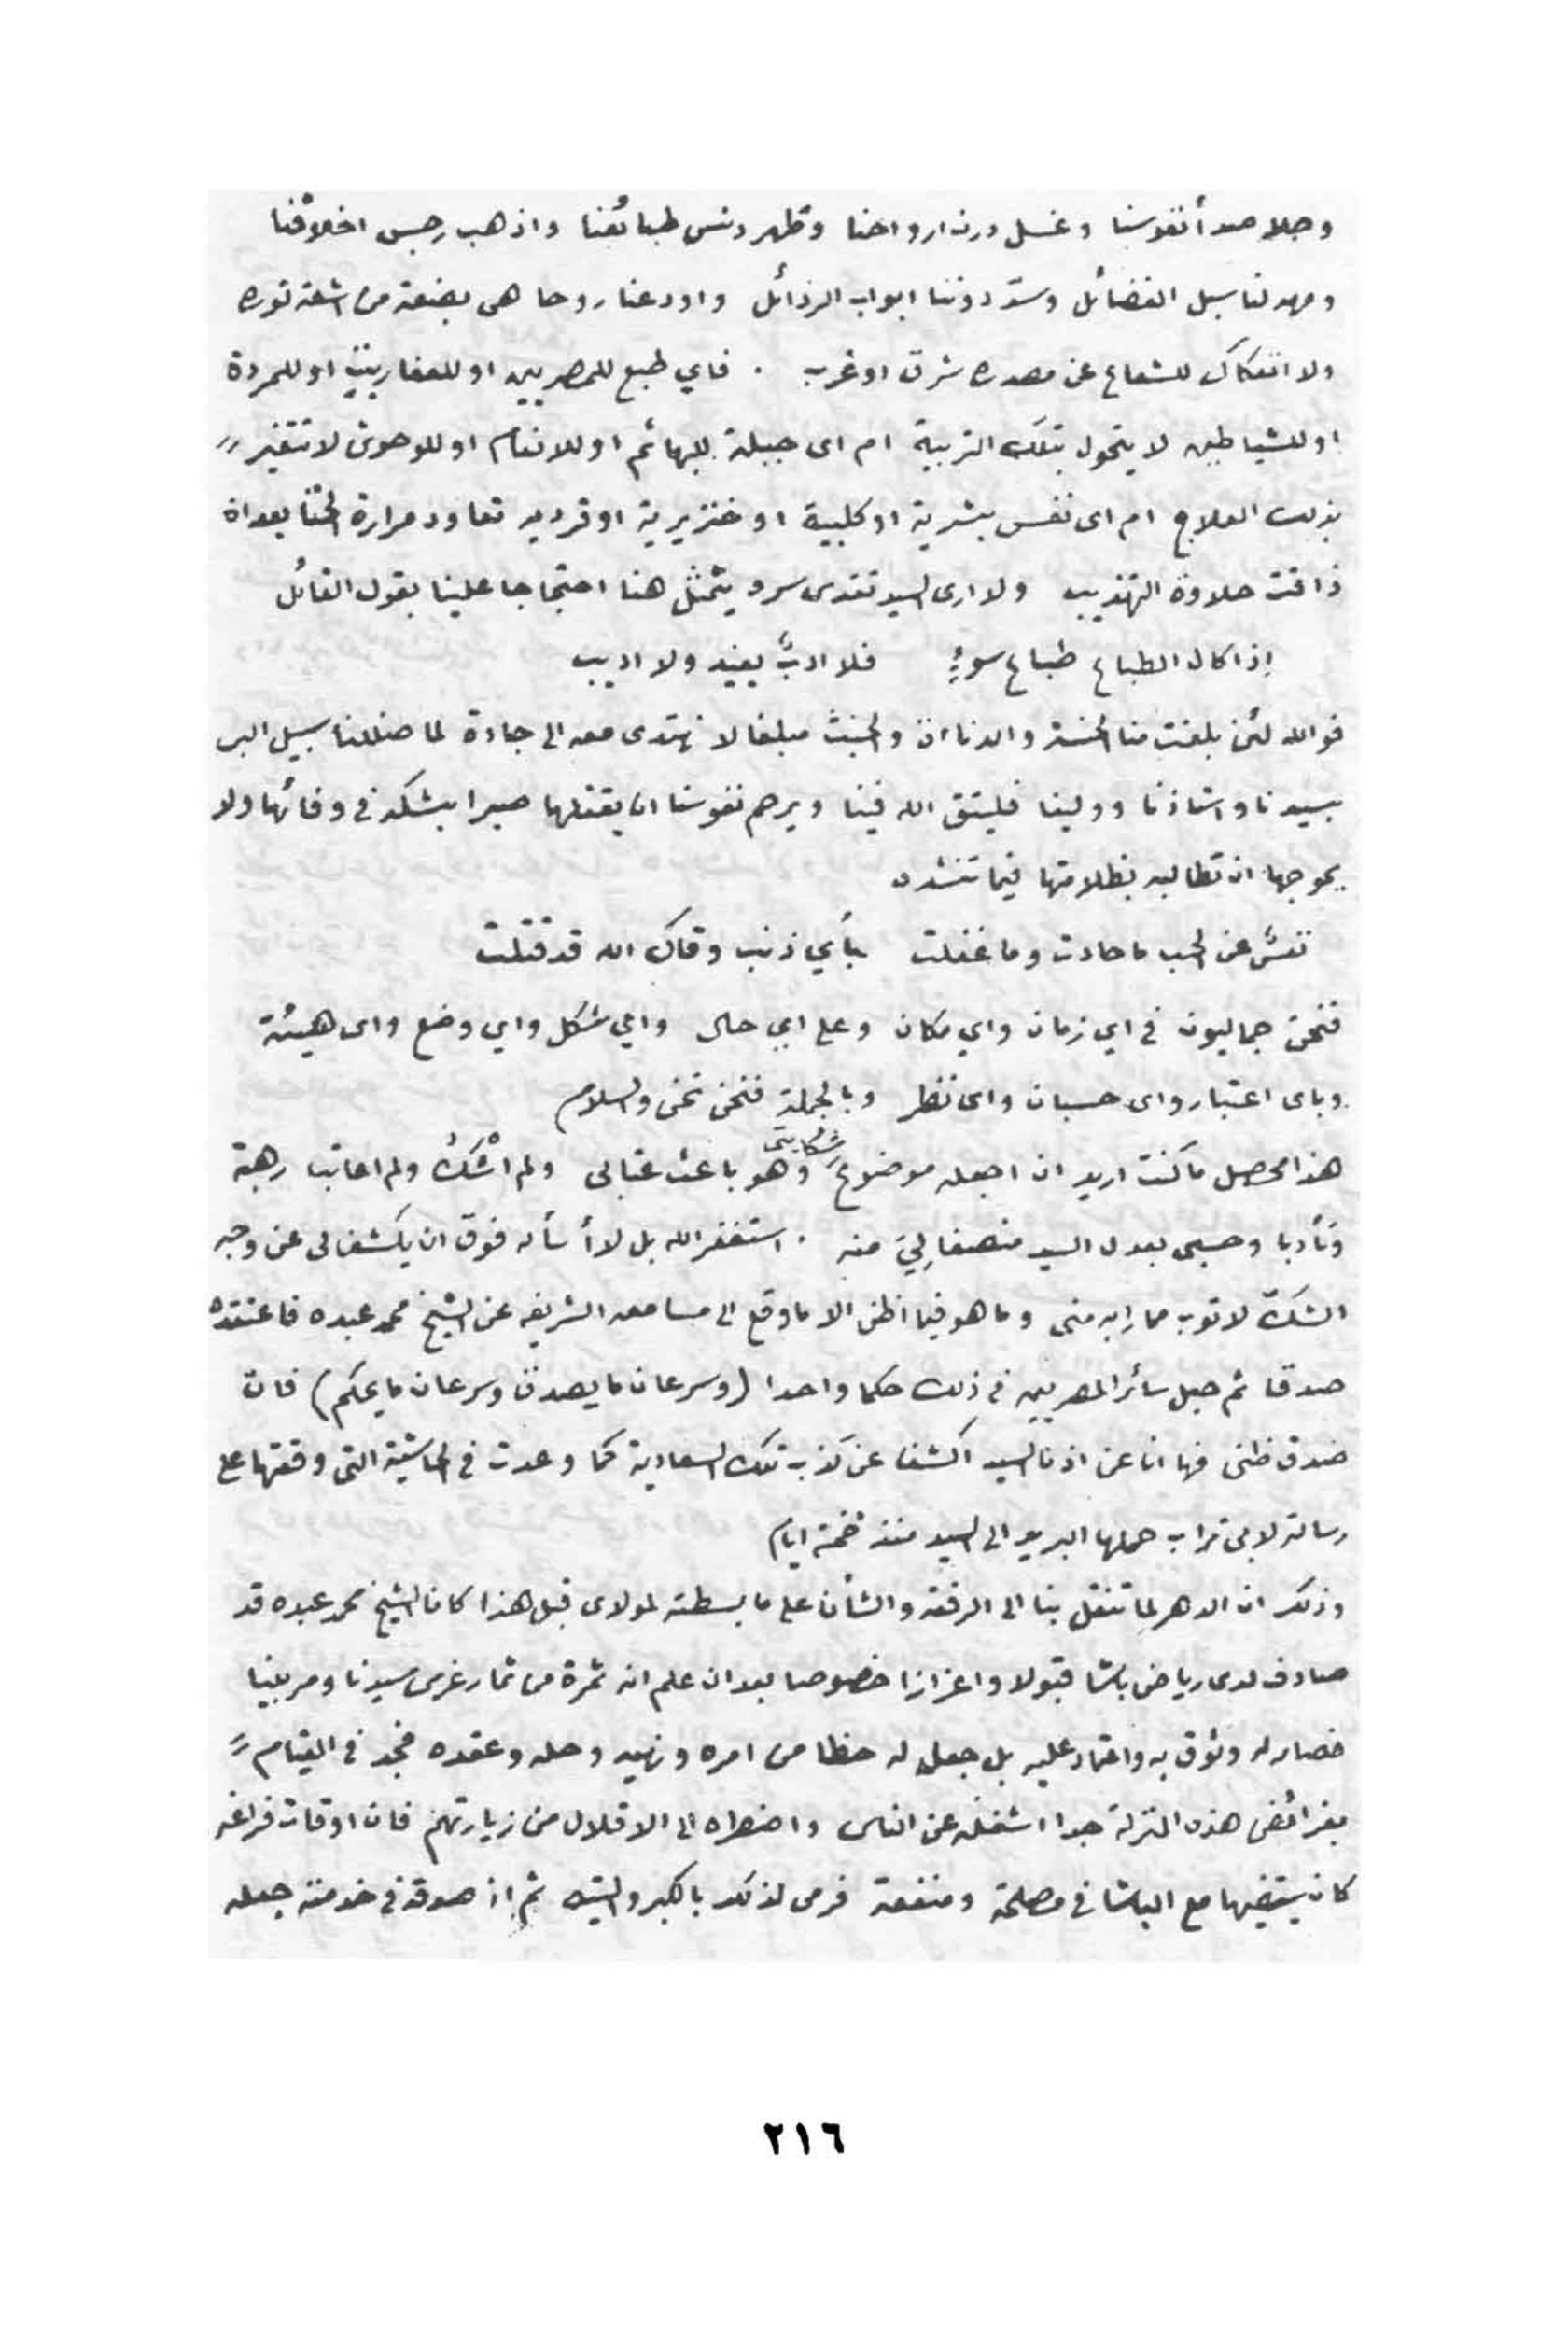 وجلا صدأ نفوسنا وغسل درن ارواحنا وطهر دنس طبائعنا واذهب رجس اخلاقنا
ومهد لنا سبل الفضائل وسدّ دوننا ابواب الرذائل واودعنا روحا هى بضعة من اشعة نوره
ولا انفكاك للشعاع عن مصدره شرق او غرب . فاي طبع للمصريين او للعفاريت او للمردة
او للشياطين لا يتحول بتلك التربية ام اى جبلة للبهائم او للانعام او للوحوش لا تتغير
بذلك العلاج ام اى نفس بشرية او كلبية او خنزيرية او قردية تعاود مرارة الخنا بعد ان
ذاقت حلاوة التهذيب ولا ارى السيد تقدس سره يتمثل هنا احتجاجا علينا بقول القائل
إذا كان الطباع طباع سوءٍ فلا ادبٌ يفيد ولا اديب
فوالله لئن بلغت منا الخسة والدناءة والخبث مبلغا لا نهتدى معه الى جادة لما ضللنا سبيل البر
بسيدنا واستاذنا وولينا فليتق الله فينا ويرحم نفوسنا ان يقتلها صبرا بشكه فى وفائها ولا
يحوجها ان تطالبه بظلامتها فيما تنشده
نفسٌ عن الحب ما حادت وما غفلت بأي ذنب وقاك الله قد قتلت
فنحن جماليون فى اي زمان واي مكان وعلى اي حال واي شكل واي وضع واى هيئة
وباى اعتبار واى حسبان واى نظر وبالجملة فنحن نحن والسلام
هذا محصل ما كنت اريد ان اجعله موضوع شكايتى وهو باعث عتابى ولم اشْكُ ولم اعاتب رهبة
وتأدبا وحسبى بعدل السيد منصفا لِيَ منه . استغفر الله بل لا أسأله فوق ان يكشف لى عن وجه
الشك لاتوب مما رابه منى وما هو فيما اظن الا ما وقع الى مسامعه الشريفه عن الشيخ محمد عبده فاعتقده
صدقا ثم جعل سائر المصريين فى ذلك حكما واحدا (وسرعان ما يصدق وسرعان ما يحكم) فان
صدق ظنى فها انا عن اذن السيد اكشف عن كذب تلك السعاية كما وعدت فى الحاشية التى وقعتها على
رسالة لابى تراب حملها البريد الى السيد منذ خمسة ايام
وذلك ان الدهر لما تنقل بنا الى الرفعة والشأن على ما بسطته لمولاى قبل هذا كان الشيخ محمد عبده قد
صادف لدى رياض باشا قبولا واعزازا خصوصا بعد ان علم انه ثمرة من ثمار غرس سيدنا ومربينا
فصار له وثوق به واعتماد عليه بل جعل له حظا من امره ونهيه وحله وعقده فجد فى القيام
بفرائض هذه المنزلة جدا اشغله عن الناس واضطره الى الاقلال من زيارتهم فان اوقات فراغه
كان يقضيها مع الباشا فى مصلحة ومنفعة فرمى لذلك بالكبر والتيه ثم اذ صدقه فى خدمته جعله
٢١٦